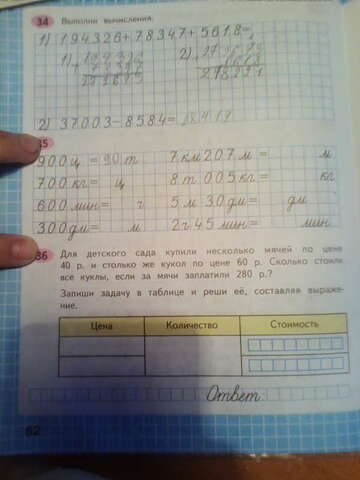 34 Выполни вычисления.
1) 194326+78347+5618=
1) 194326 2) 
+ 78347
2) 37003-8584=
35
900 ц = 90 т 7 км 207 м = м
700 кг = ц 8 т 005 кг = кг
600 мин = г 5 м 30 дм = дм
300 дм = м 2 г 45 мин = мин
36 Для детского сада купили несколько мячей по цене
40 р. и столько же кукол по цене 60 р. Сколько стоили
все куклы, если за мячи заплатили 280 р.?
Запиши задачу в таблице и реши её, составляя выраже-
ние.
Цена Количество Стоимость
Ответ:
62